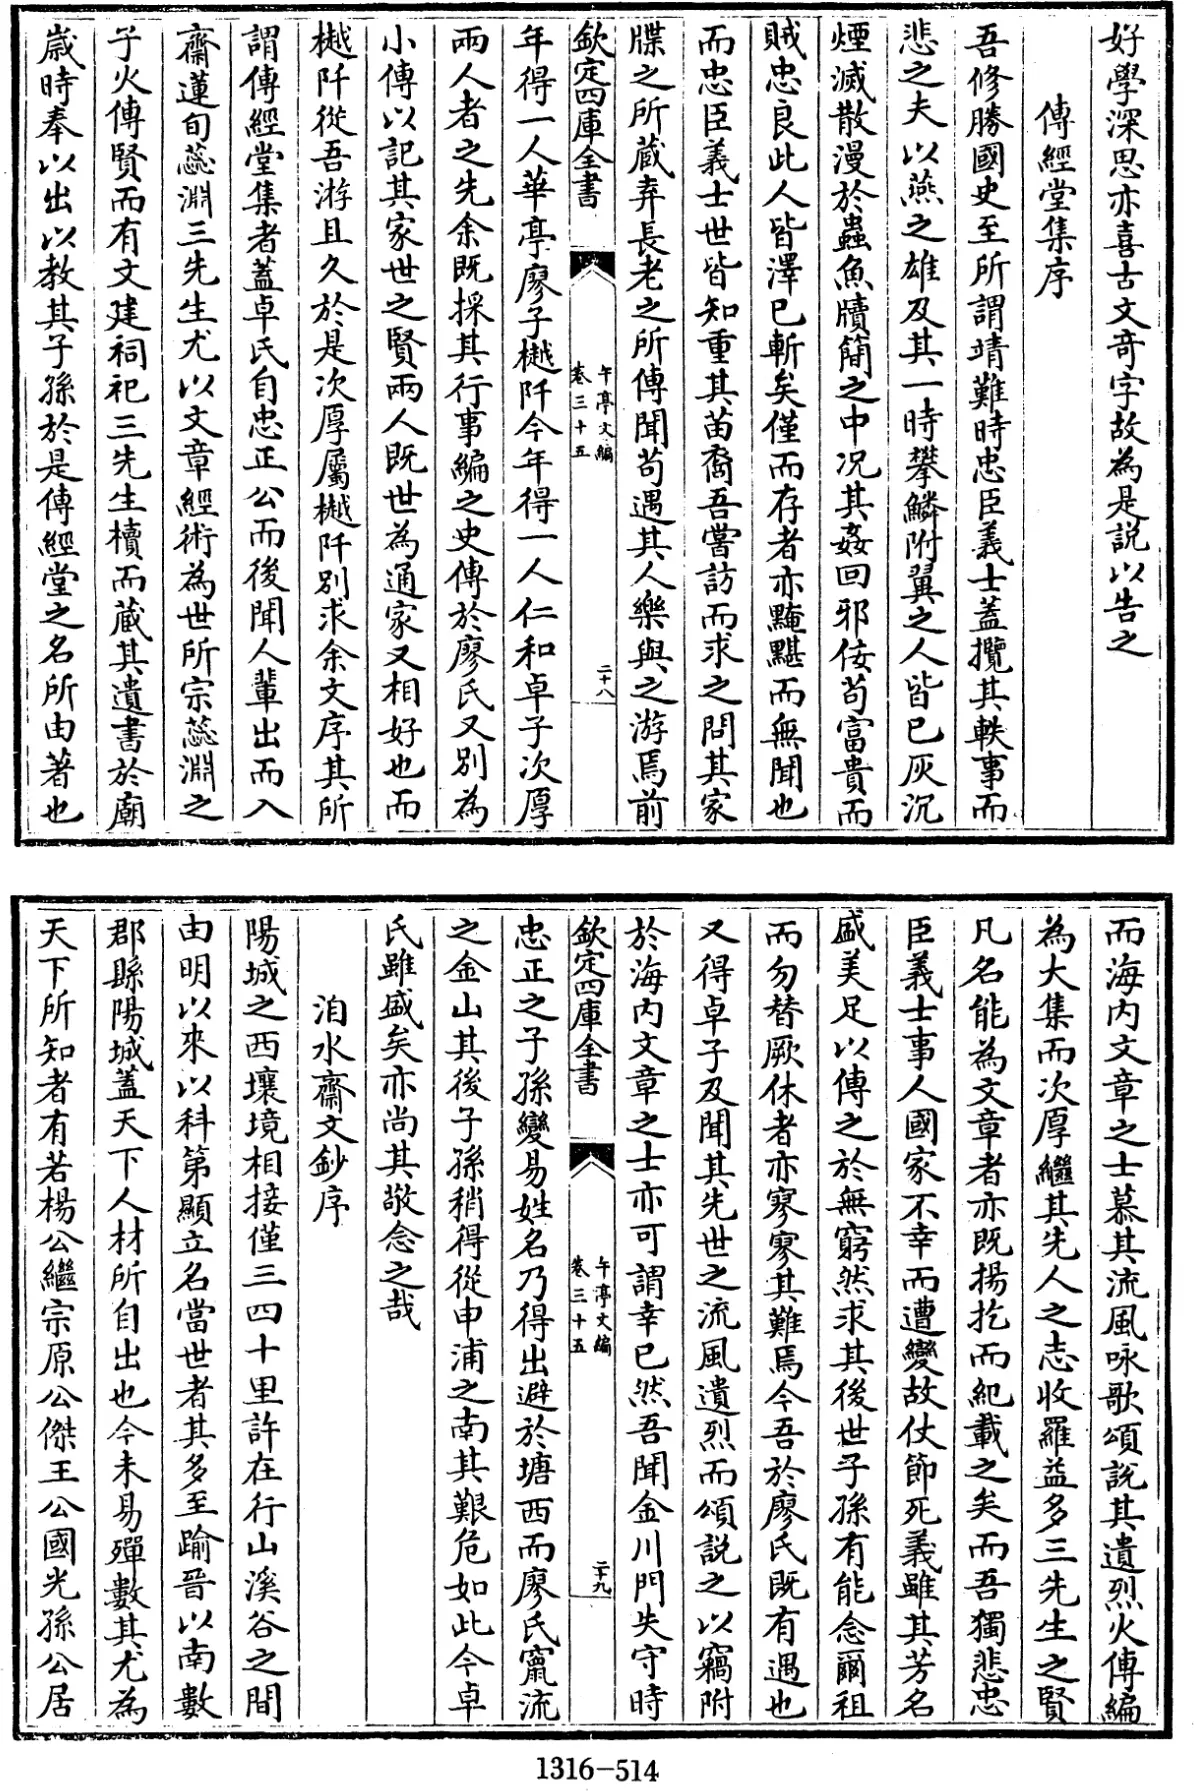 好學深思亦喜古文奇字故為是說以告之
傳經堂集序
吾修勝國史至所謂靖難時忠臣義士蓋攬其軼事而
悲之夫以燕之雄及其一時攀鱗附翼之人皆已灰沉
煙滅散漫於蟲魚牘簡之中况其姦回邪佞苟富貴而
賊忠良此人皆澤已斬矣僅而存者亦黤黮而無聞也
而忠臣義士世皆知重其苗裔吾嘗訪而求之問其家
牒之所蔵弆長老之所傳聞苟遇其人樂與之游焉前
欽定四庫全書
午亭文編
卷三十五
二十八
年得一人華亭廖子樾阡今年得一人仁和卓子次厚
兩人者之先余既採其行事編之史傳於廖氏又別為
小傳以記其家世之賢兩人既世為通家又相好也而
樾阡從吾游且久於是次厚屬樾阡別求余文序其所
謂傳經堂集者蓋卓氏自忠正公而後聞人輩出而入
齋蓮旬蕊淵三先生尤以文章經術為世所宗蕊淵之
子火傳賢而有文建祠祀三先生櫝而蔵其遺書於廟
歳時奉以出以教其子孫於是傳經堂之名所由著也
而海内文章之士慕其流風咏歌頌說其遺烈火傳編
為大集而次厚繼其先人之志收羅益多三先生之賢
凡名能為文章者亦既揚扢而紀載之矣而吾獨悲忠
臣義士事人國家不幸而遭變故仗節死義雖其芳名
盛美足以傳之於無窮然求其後世子孫有能念爾祖
而勿替厥休者亦寥寥其難焉今吾於廖氏既有遇也
又得卓子及聞其先世之流風遺烈而頌說之以竊附
於海内文章之士亦可謂幸已然吾聞金川門失守時
欽定四庫全書
午亭文編
卷三十五
二十九
忠正之子孫變易姓名乃得出避於塘西而廖氏竄流
之金山其後子孫稍得從申浦之南其艱危如此今卓
氏雖盛矣亦尚其敬念之哉
洎水齋文鈔序
陽城之西壤境相接僅三四十里許在行山溪谷之間
由明以來以科第顯立名當世者其多至踰晉以南數
郡縣陽城蓋天下人材所自出也今未易殫數其尤為
天下所知者有若楊公繼宗原公傑王公國光孫公居
1316-514